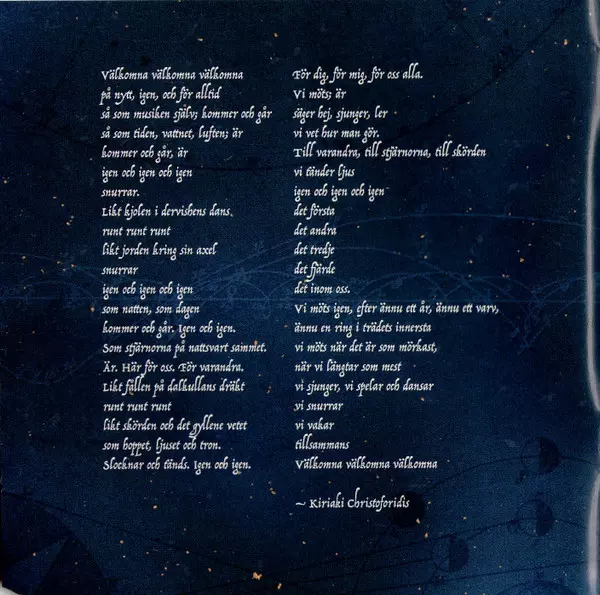 Välkomna välkomna välkomna
på nytt, igen, och för alltid
så som musiken själv; kommer och går
så som tiden, vattnet, luften; är
kommer och går, är
igen och igen och igen
snurrar.
Likt kjolen i dervishens dans
runt runt runt
likt jorden kring sin axel
snurrar
igen och igen och igen
som natten, som dagen
kommer och går. Igen och igen.
Som stjärnorna på nattsvart sammet.
Är. Här för oss. För varandra.
Likt fållen på dalkullans dräkt
runt runt runt
likt skörden och det gyllene vetet
som hoppet, ljuset och tron.
Slocknar och tänds. Igen och igen.
För dig, för mig, för oss alla.
Vi möts; är
säger hej, sjunger, ler
vi vet hur man gör.
Till varandra, till stjärnorna, till skörden
vi tänder ljus
igen och igen och igen
det första
det andra
det tredje
det fjärde
det inom oss.
Vi möts igen, efter ännu ett år, ännu ett varv,
ännu en ring i trädets innersta
vi möts när det är som mörkast,
när vi längtar som mest
vi sjunger, vi spelar och dansar
vi snurrar
vi vakar
tillsammans
Välkomna välkomna välkomna
~ Kiriaki Christoforidis